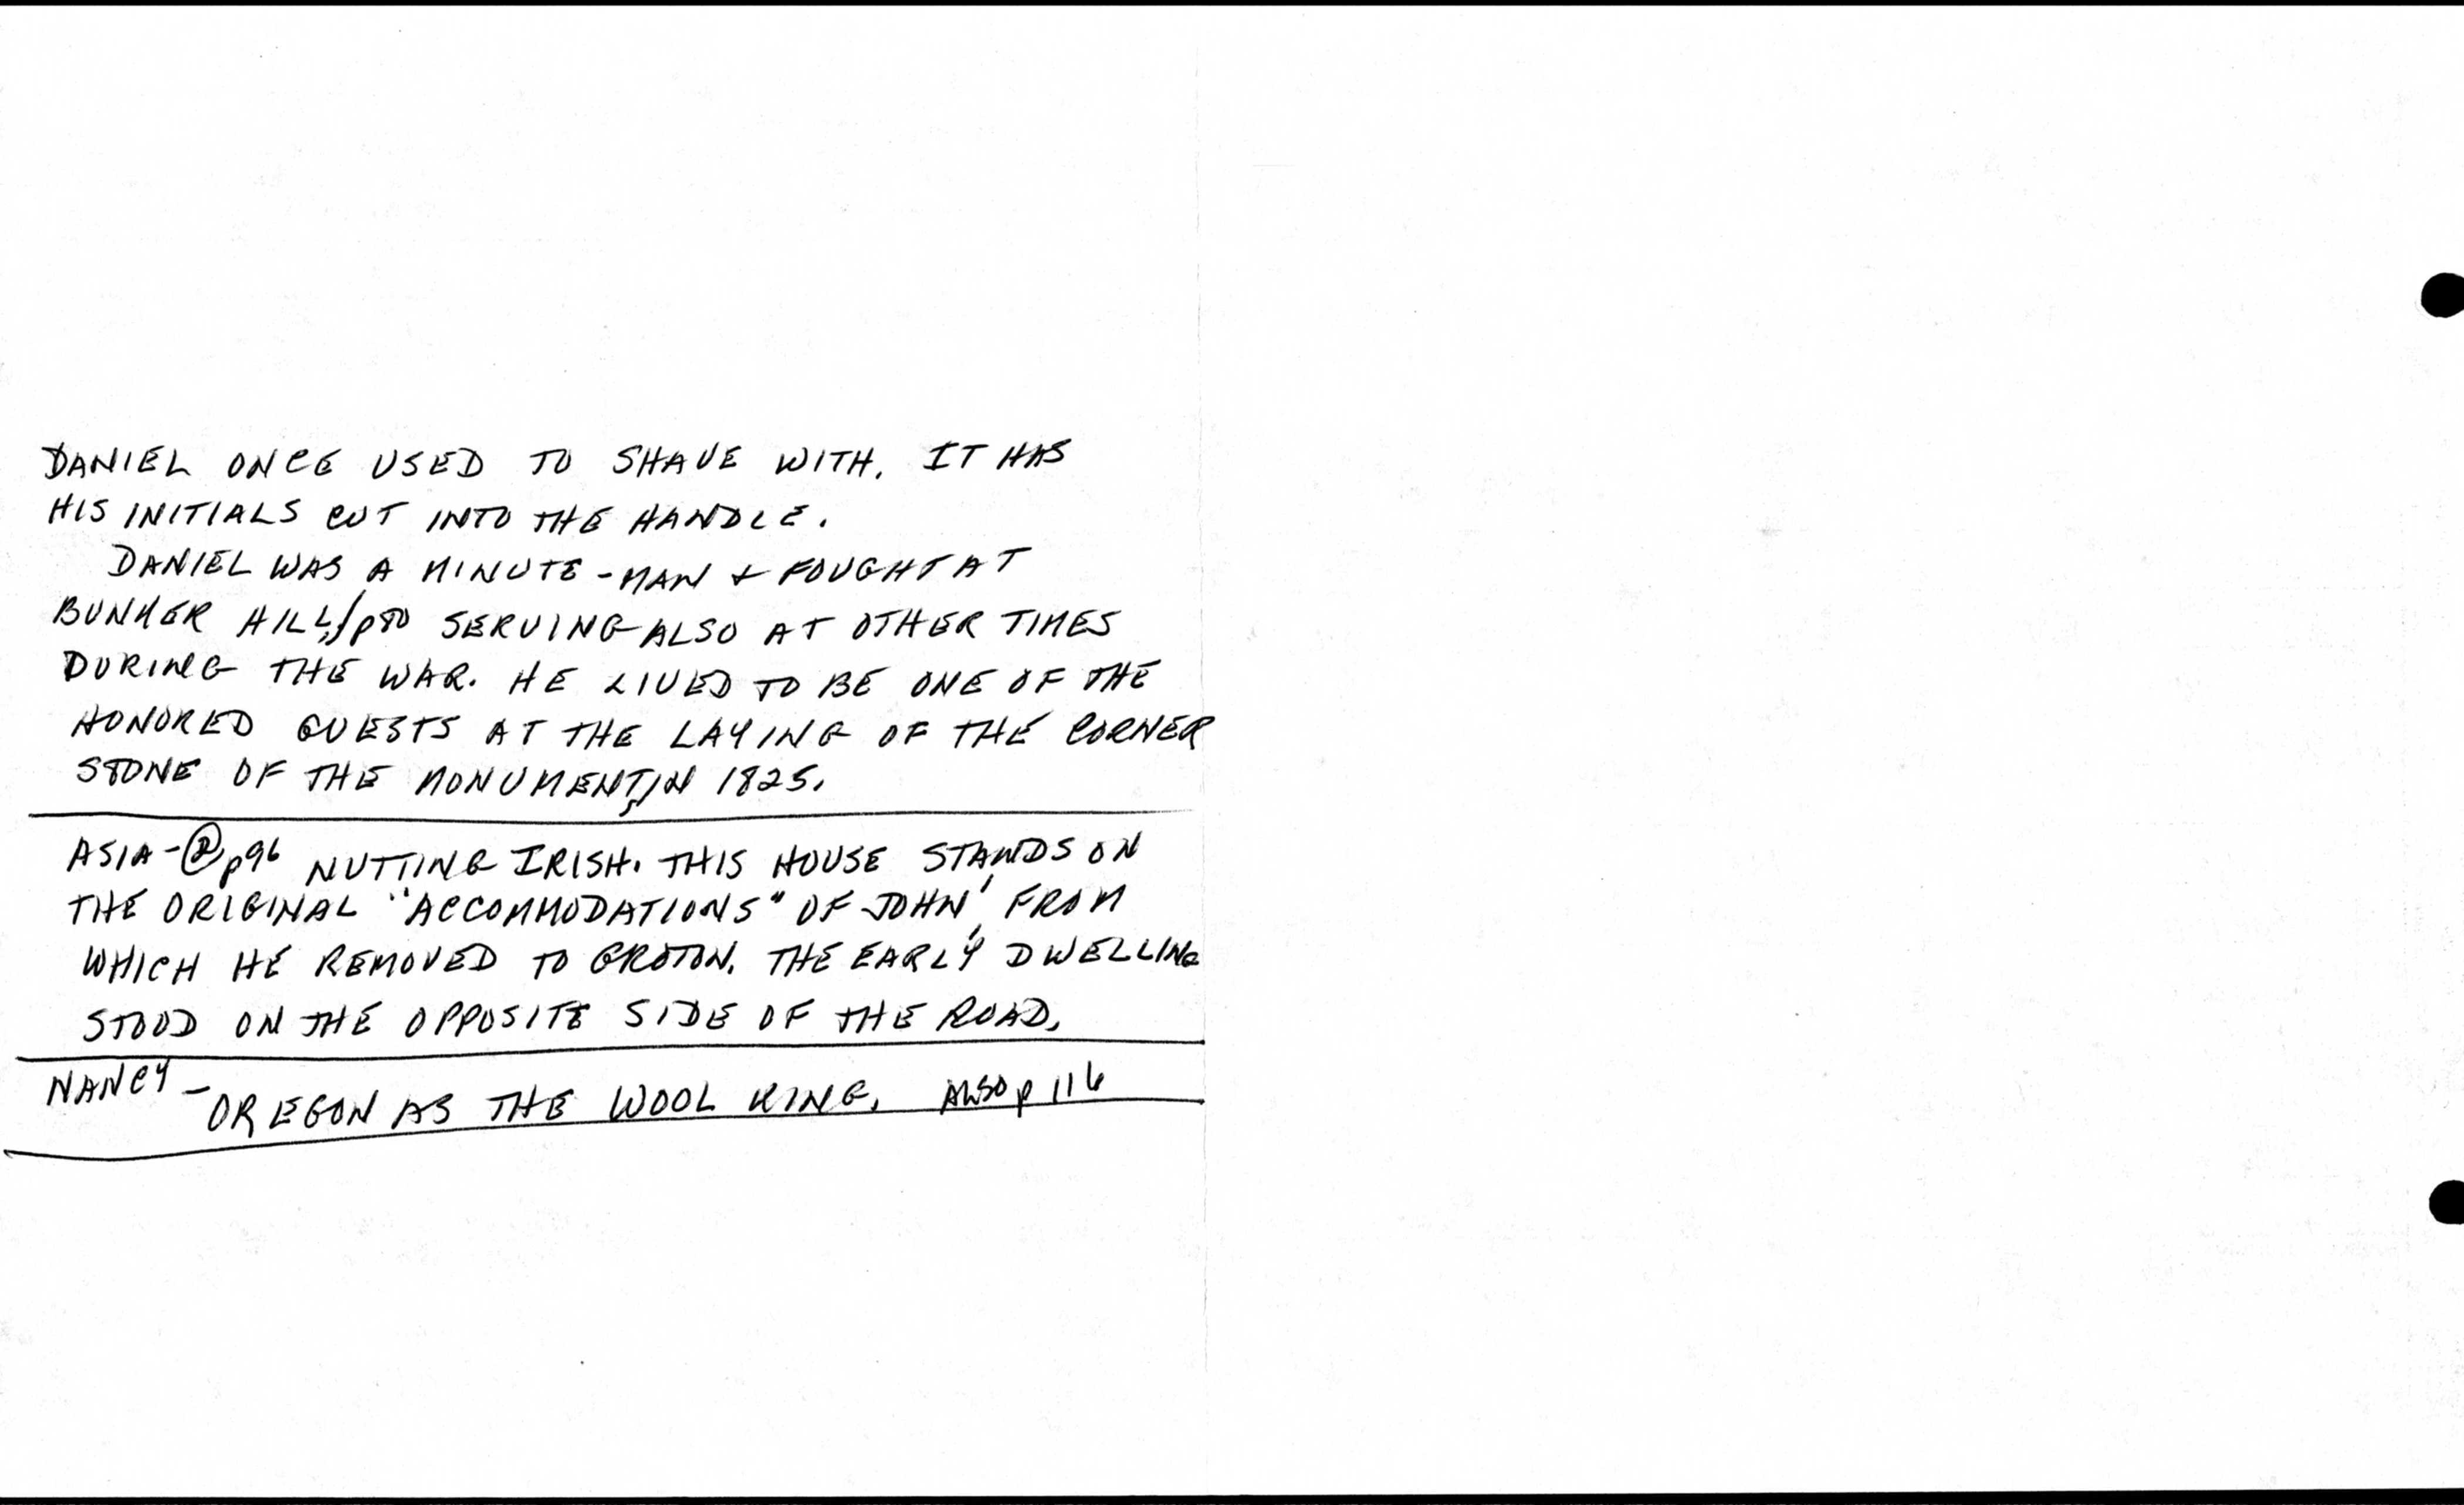 DANIEL ONCE USED TO SHAVE WITH. IT HAS
HIS INITIALS CUT INTO THE HANDLE.
DANIEL WAS A MINUTE-MAN & FOUGHT AT
BUNKER HILL, /p80 SERVING ALSO AT OTHER TIMES
DURING THE WAR. HE LIVED TO BE ONE OF THE
HONORED GUESTS AT THE LAYING OF THE CORNER
STONE OF THE MONUMENT, IN 1825.
ASIA- p96 NUTTING IRISH. THIS HOUSE STANDS ON
THE ORIGINAL "ACCOMMODATIONS" OF JOHN', FROM
WHICH HE REMOVED TO GROTON. THE EARLY DWELLING
STOOD ON THE OPPOSITE SIDE OF THE ROAD.
NANCY - OREGON AS THE WOOL KING. ALSO p 116